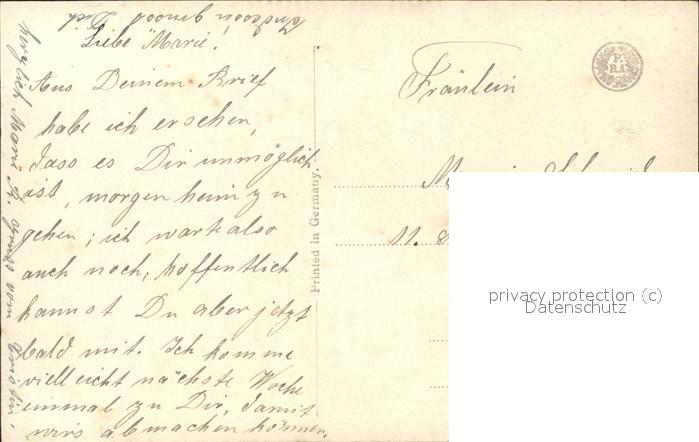 Liebe Marie!
Aus Deinem Brief
habe ich ersehen,
dass es Dir unmöglich
ist, morgen heim zu
gehen; ich warte also
auch noch, hoffentlich
kannst Du aber jetzt
bald mit. Ich komme
vielleicht nächste Woche
einmal zu Dir, damit
wirs abmachen können.
Printed in Germany.
Fräulein
11.
privacy protection (c)
Datenschutz